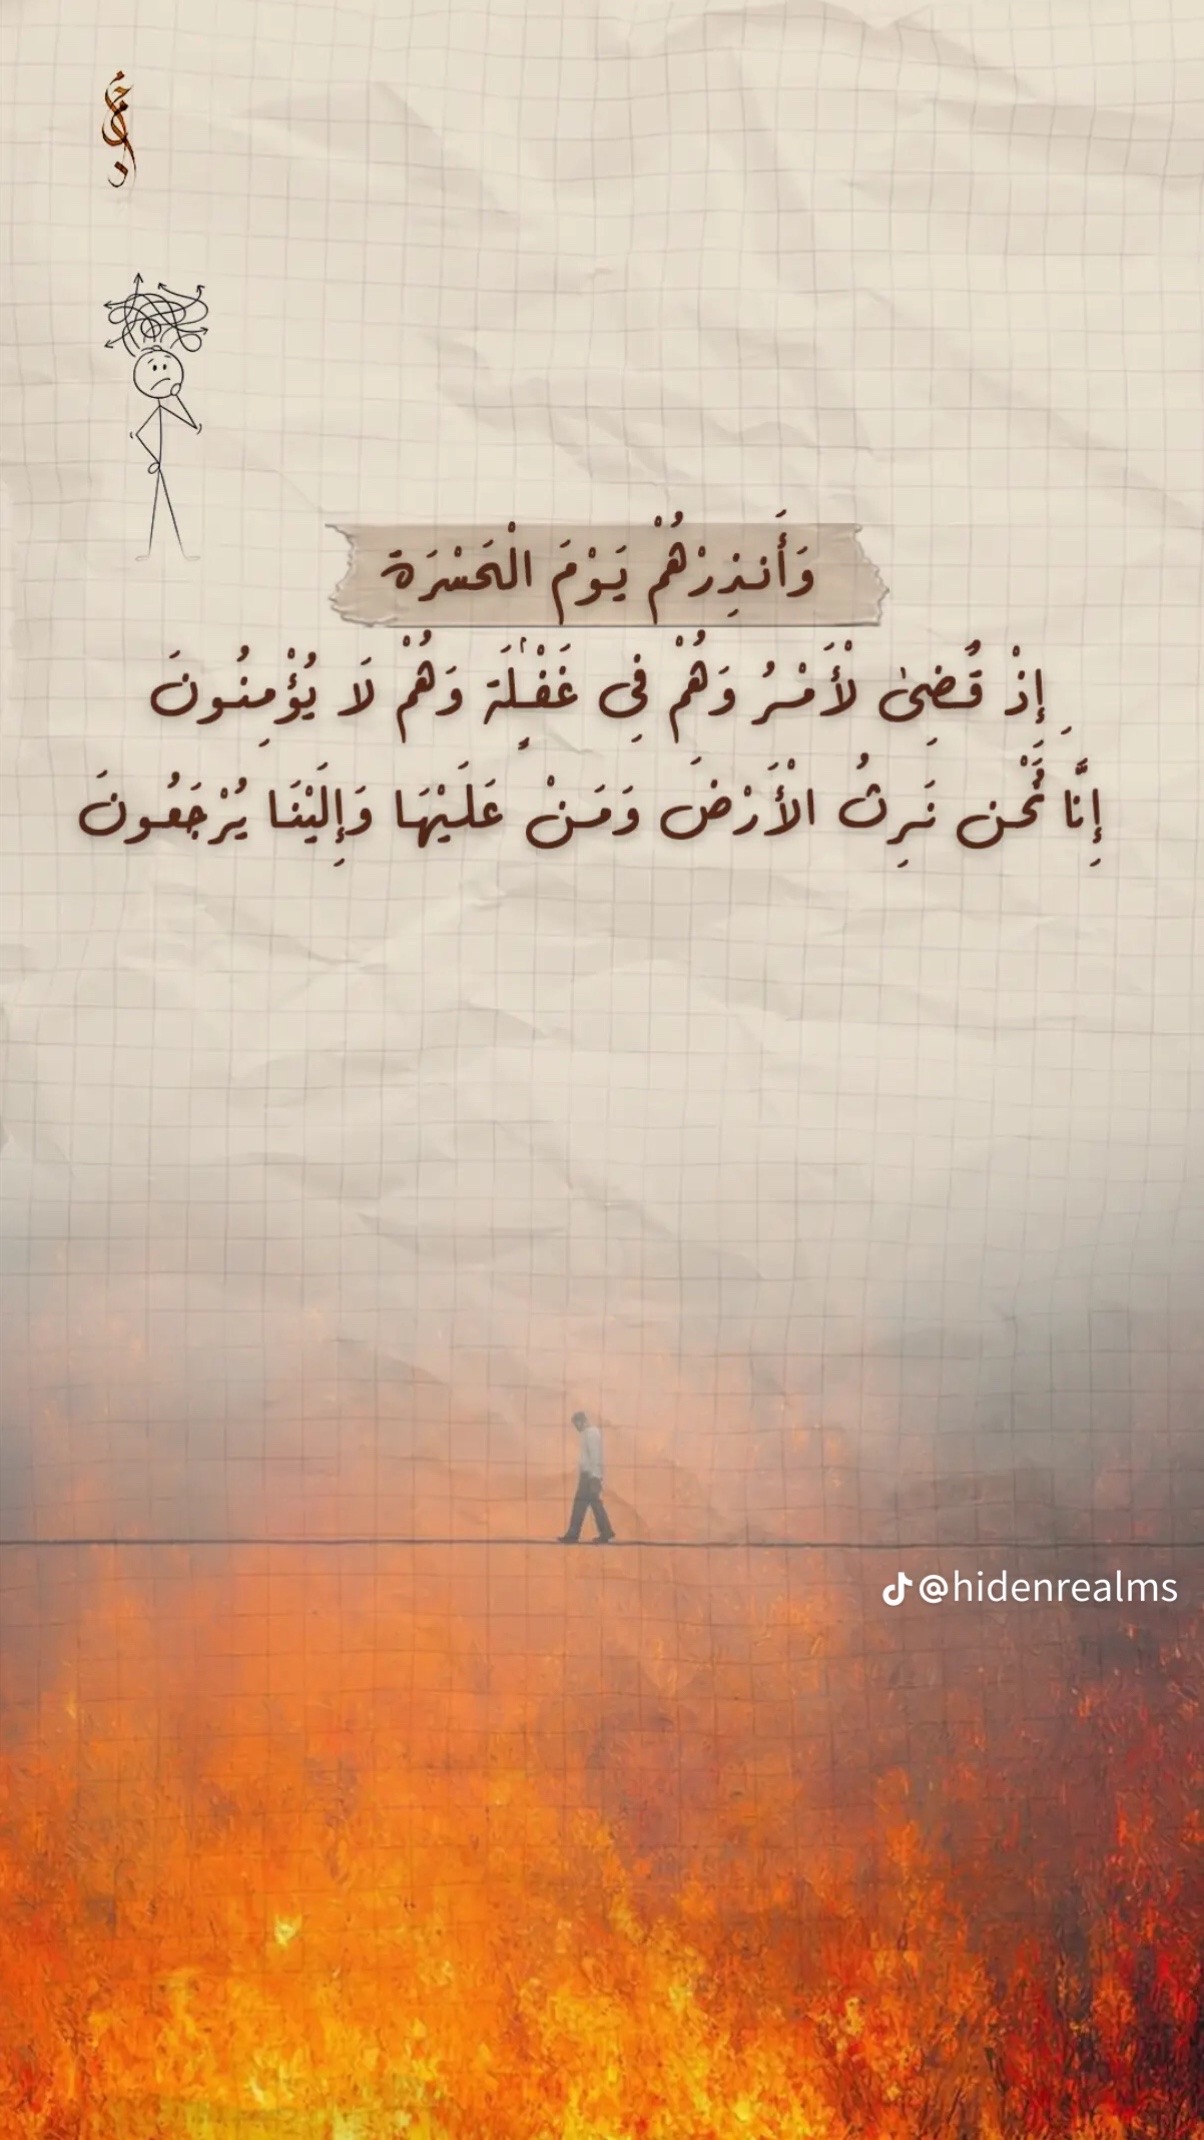 وَأَنذِرْهُمْ يَوْمَ الْحَسْرَة
إِذْ قُضِىٰ لْأَمْرُ وَهُمْ فِى غَفْلَةٍ وَهُمْ لَا يُؤْمِنُونَ
إِنَّا نَحْن نَرِثُ الْأَرْضَ وَمَنْ عَلَيْهَا وَإِلَيْنَا يُرْجَعُونَ
@hidenrealms